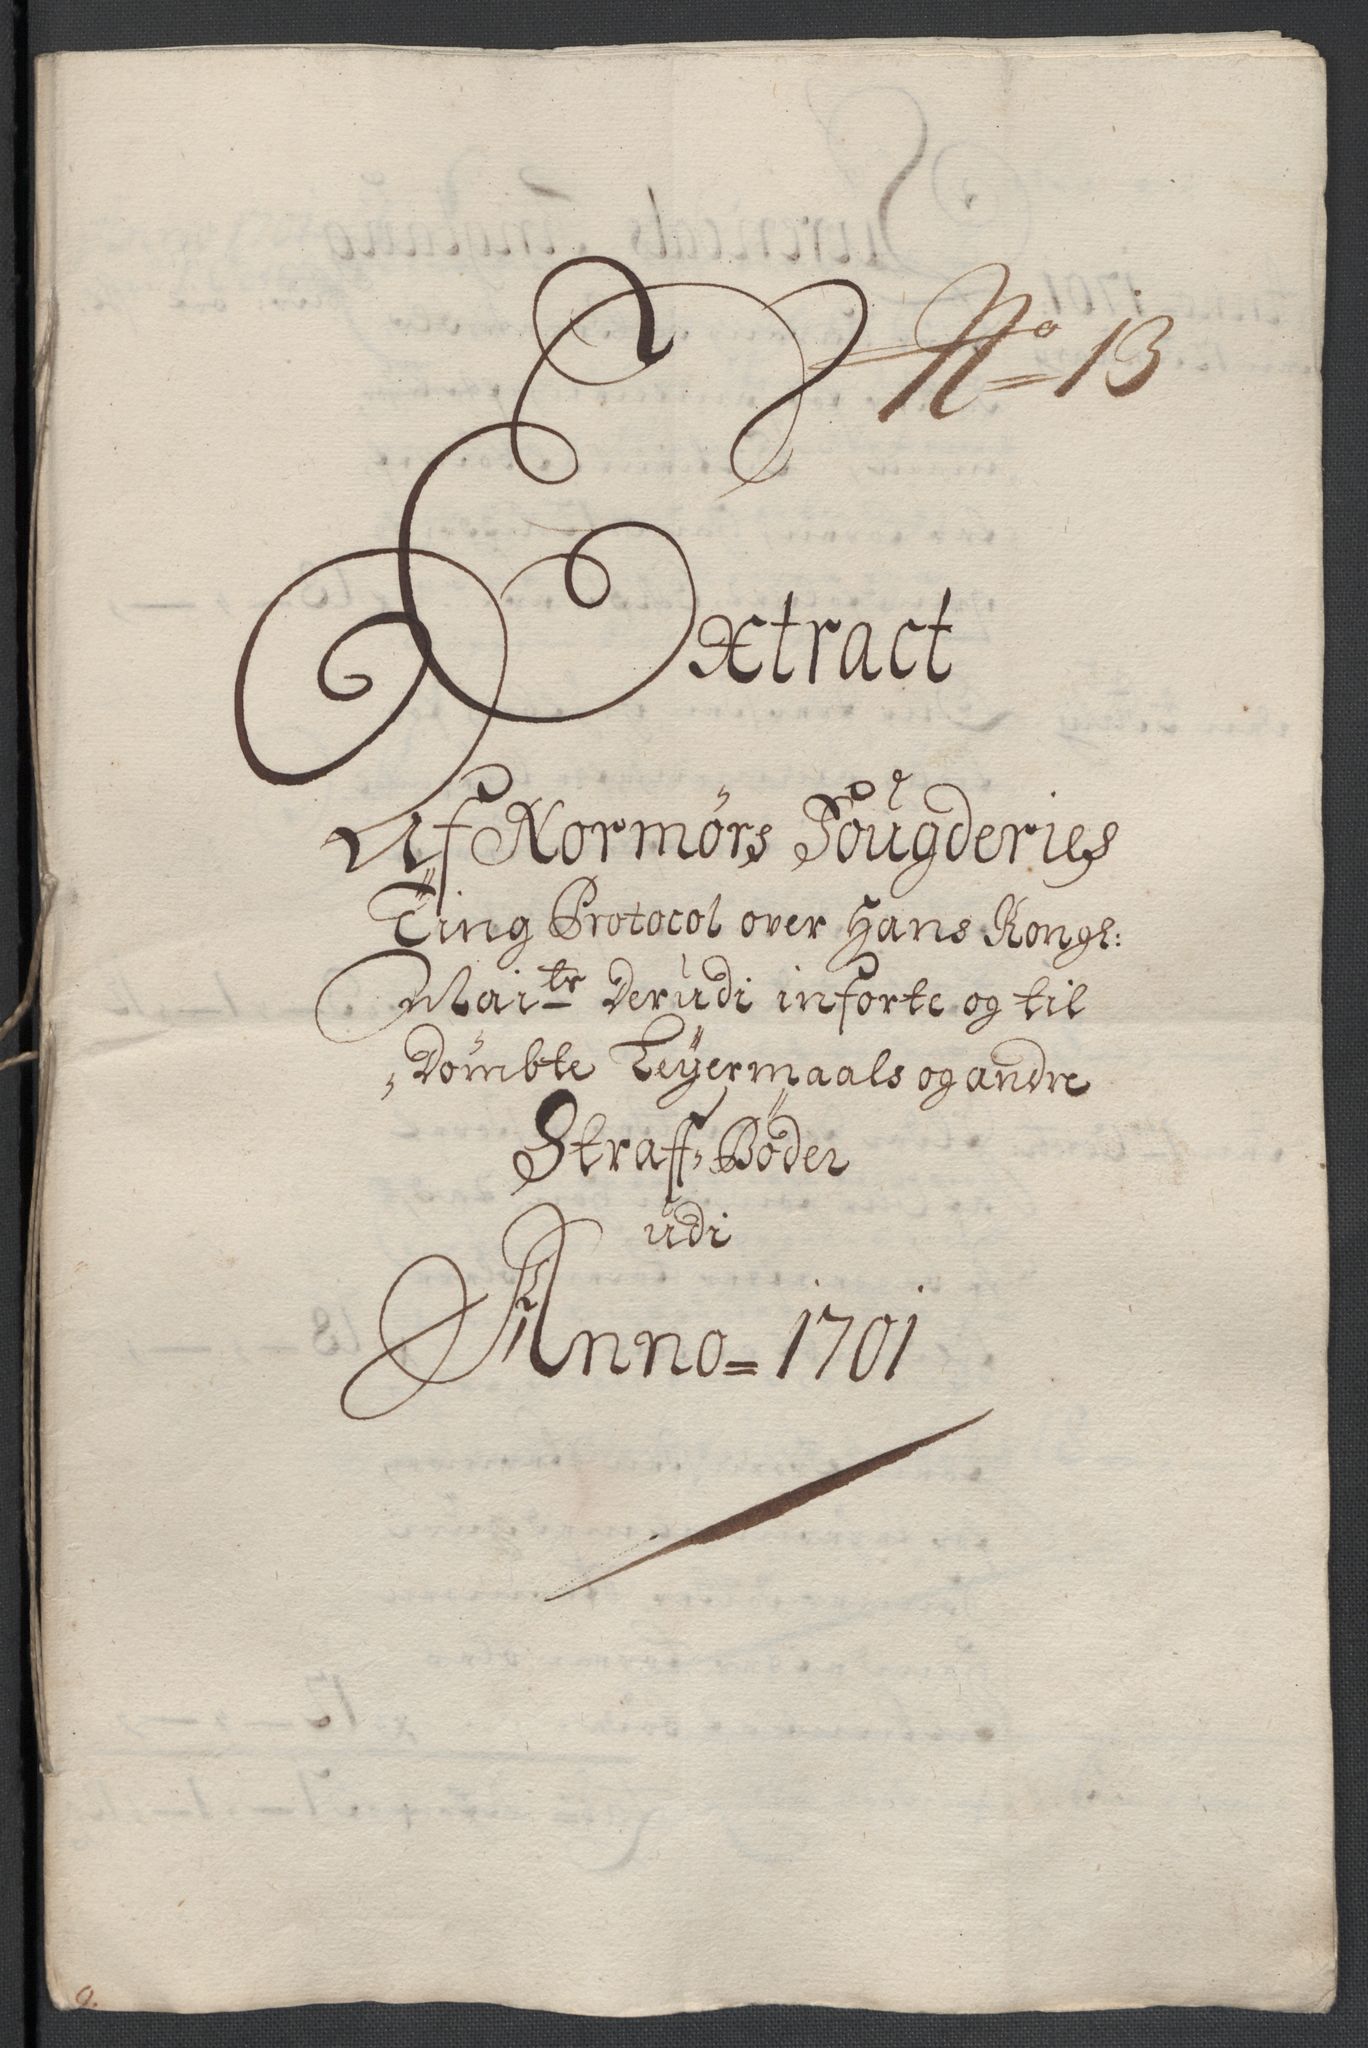 No 13
Extract
Af Normørs Fougderies
Ting Protocol over Hans Kongl:
Maitr Derudi inførte og til
Dømbte Leyermaals og andre
Straff-Bøder
udi
Anno = 1701
9.